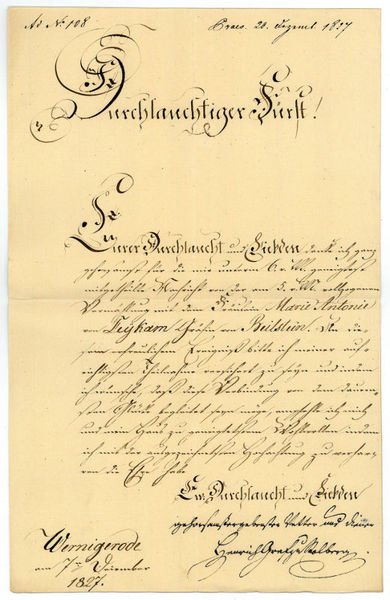 Ad No 108
Praes. 20. Dezemb. 1827
Durchlauchtiger Fürst!
Eurer Durchlaucht und Liebden danke ich ganz
gehorsamst für die mir unterm 6. v. M. geneigtest
mitgetheilte Nachricht von der am 5. v. M. vollzogenen
Vermählung mit der Fräulein Marie Antonie
von Leykam Gräfin von Beilstein. Bei die-
sem erfreulichen Ereigniß bitte ich meiner auf-
richtigsten Theilnahme versichert zu seyn und indem
ich wünsche, daß diese Verbindung von dem dauernd-
sten Glück begleitet seyn möge, empfehle ich mich
und mein Haus zu geneigtestem Wohlwollen, indem
ich mit der ausgezeichnetsten Hochachtung zu verhar-
ren die Ehre habe
Ew. Durchlaucht und Liebden
gehorsamst ergebenster Vetter und Diener
Henrich Graf zu Stolberg
Wernigerode
am 7ten December
1827.